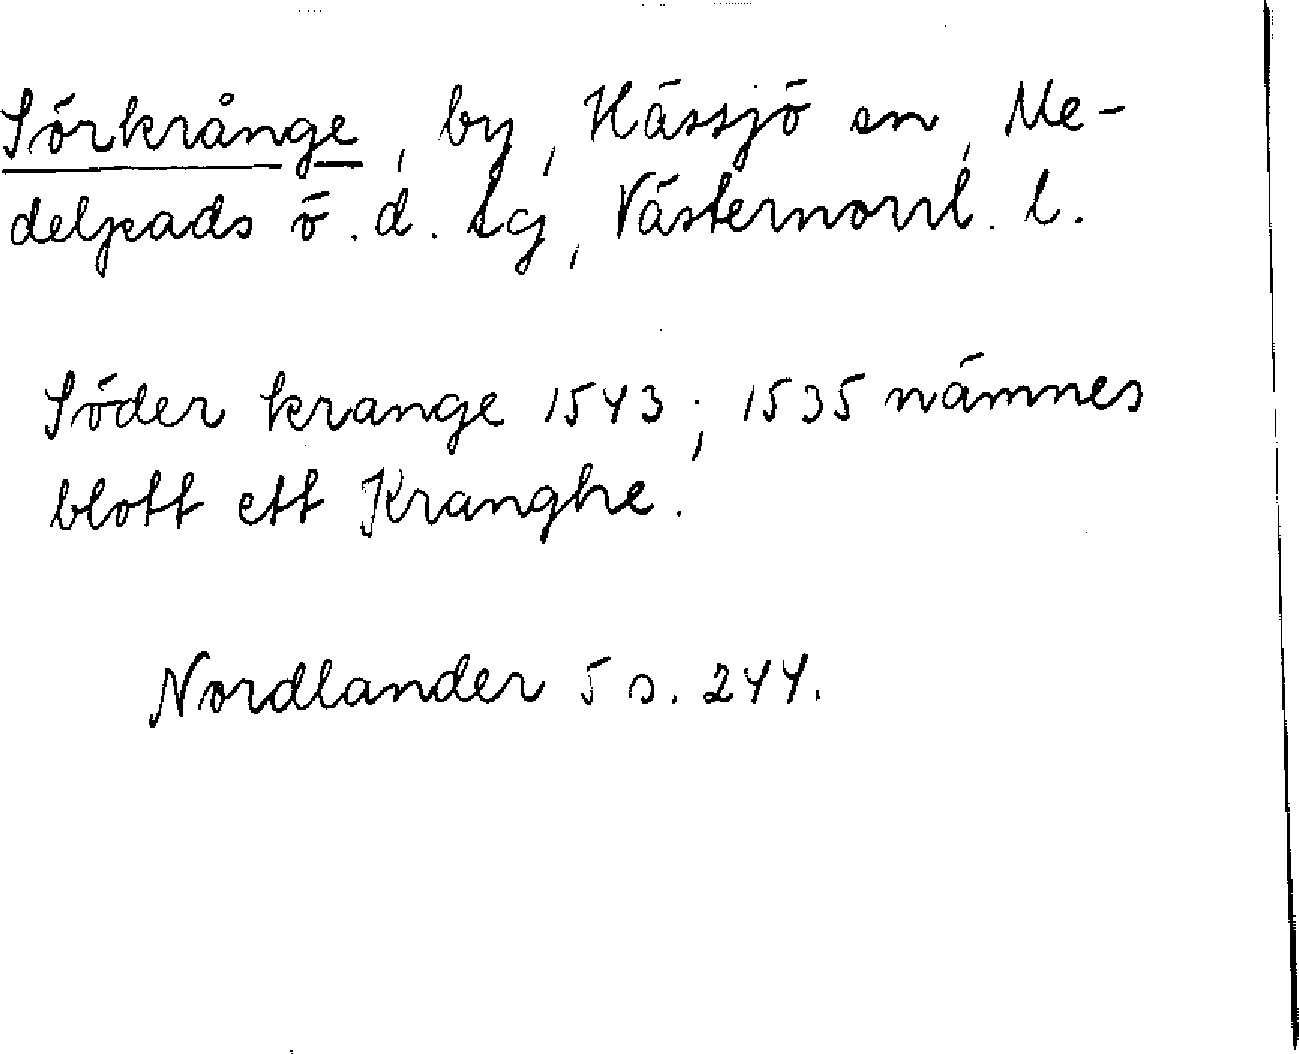 Sörkrånge, by, Hässjö sn, Me-
delpads ö. d. tg, Västernorrl. l.
Söder krange 1543; 1535 nämnes
blott ett Kranghe.
Nordlander 5 s. 244.